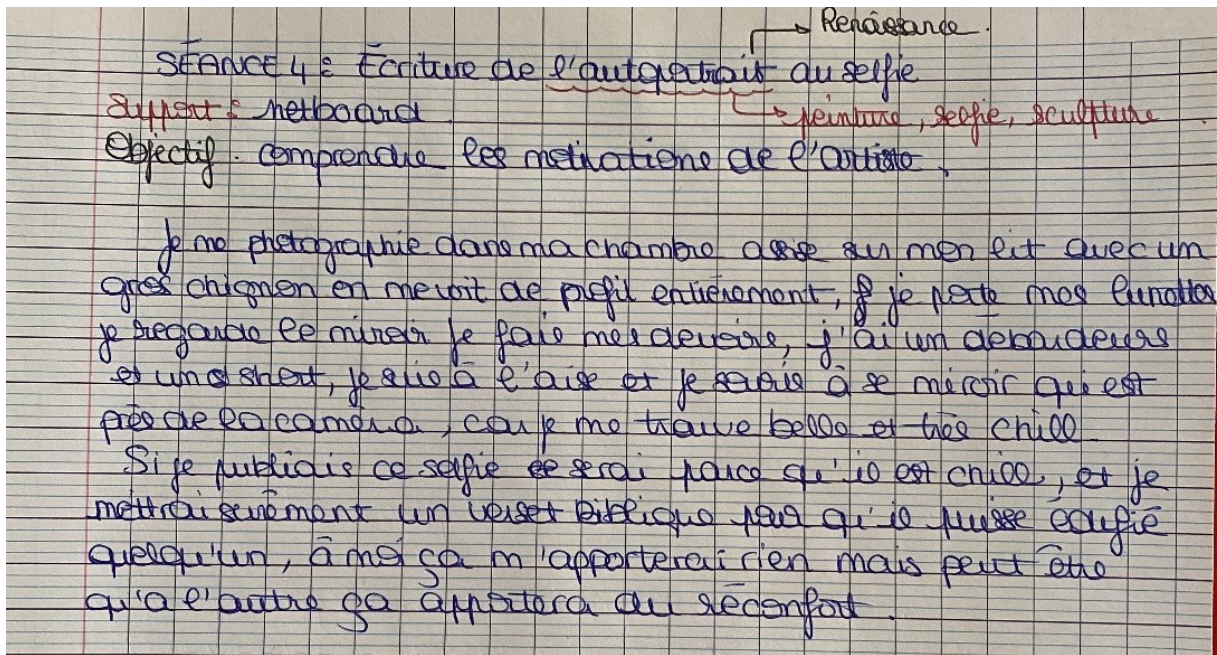 Renaissance.
SÉANCE 4 : Écriture de l'autoportrait au selfie
Support : netboard
peinture, selfie, sculpture
Objectif. comprendre les motivations de l'artiste.
Je me photographie dans ma chambre assise sur mon lit avec un
gros chignon on me voit de profil entièrement, je porte mes lunettes
je regarde le miroir je fais mes devoirs, j'ai un debardeurs
et un short, je suis à l'aise et je souris à se miroir qui est
près de la caméra, car je me trouve belle et très chill
Si je publiais ce selfie ce serai parce qu'il est chill, et je
mettrai surement un verset biblique pour qu'il puisse édifié
quelqu'un, à moi ça m'apporterai rien mais peut être
qu'a l'autre ça apportera du réconfort.